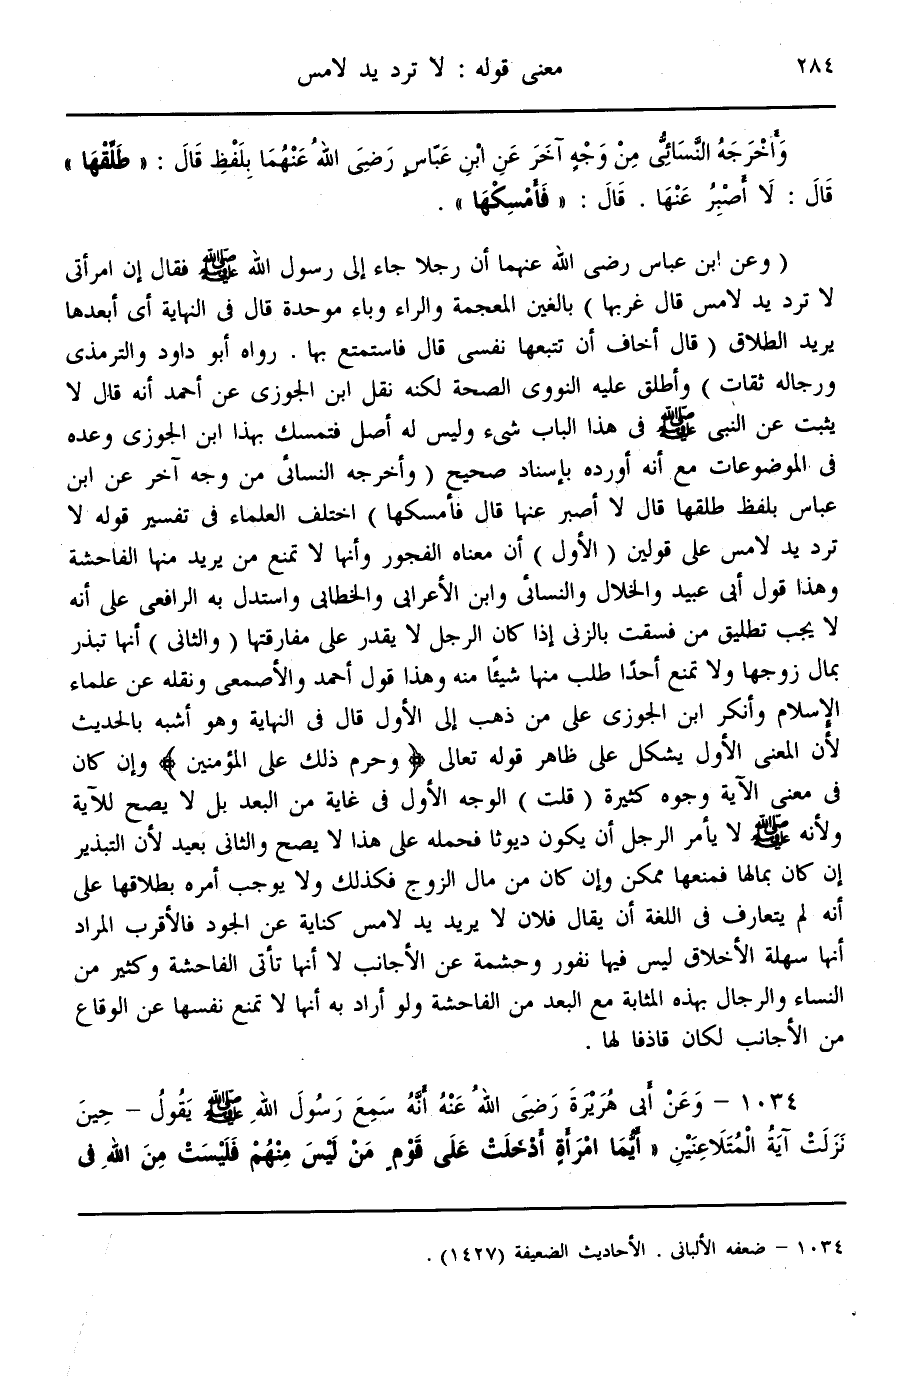 ٢٨٤
معنى قوله : لا ترد يد لامس
وَأَخْرَجَهُ النَّسَائِىُّ مِنْ وَجْهٍ آخَرَ عَنِ ابْنِ عَبَّاسٍ رَضِىَ اللهُ عَنْهُمَا بِلَفْظِ قَالَ : « طَلِّقْهَا »
قَالَ : لَا أَصْبِرُ عَنْهَا . قَالَ : « فَأَمْسِكْهَا » .
( وعن ابن عباس رضى الله عنهما أن رجلا جاء إلى رسول الله ﷺ فقال إن امرأتى
لا ترد يد لامس قال غربها ) بالغين المعجمة والراء وباء موحدة قال فى النهاية أى أبعدها
يريد الطلاق ( قال أخاف أن تتبعها نفسى قال فاستمتع بها . رواه أبو داود والترمذى
ورجاله ثقات ) وأطلق عليه النووى الصحة لكنه نقل ابن الجوزى عن أحمد أنه قال لا
يثبت عن النبى ﷺ فى هذا الباب شىء وليس له أصل فتمسك بهذا ابن الجوزى وعده
فى الموضوعات مع أنه أورده بإسناد صحيح ( وأخرجه النسائى من وجه آخر عن ابن
عباس بلفظ طلقها قال لا أصبر عنها قال فأمسكها ) اختلف العلماء فى تفسير قوله لا
ترد يد لامس على قولين ( الأول ) أن معناه الفجور وأنها لا تمنع من يريد منها الفاحشة
وهذا قول أبى عبيد والخلال والنسائى وابن الأعرابى والخطابى واستدل به الرافعى على أنه
لا يجب تطليق من فسقت بالزنى إذا كان الرجل لا يقدر على مفارقتها ( والثانى ) أنها تبذر
بمال زوجها ولا تمنع أحدًا طلب منها شيئًا منه وهذا قول أحمد والأصمعى ونقله عن علماء
الإسلام وأنكر ابن الجوزى على من ذهب إلى الأول قال فى النهاية وهو أشبه بالحديث
لأن المعنى الأول يشكل على ظاهر قوله تعالى ﴿ وحرم ذلك على المؤمنين ﴾ وإن كان
فى معنى الآية وجوه كثيرة ( قلت ) الوجه الأول فى غاية من البعد بل لا يصح للآية
ولأنه ﷺ لا يأمر الرجل أن يكون ديوثا فحمله على هذا لا يصح والثانى بعيد لأن التبذير
إن كان بمالها فمنعها ممكن وإن كان من مال الزوج فكذلك ولا يوجب أمره بطلاقها على
أنه لم يتعارف فى اللغة أن يقال فلان لا يريد يد لامس كناية عن الجود فالأقرب المراد
أنها سهلة الأخلاق ليس فيها نفور وحشمة عن الأجانب لا أنها تأتى الفاحشة وكثير من
النساء والرجال بهذه المثابة مع البعد من الفاحشة ولو أراد به أنها لا تمنع نفسها عن الوقاع
من الأجانب لكان قاذفا لها .
١٠٣٤ – وَعَنْ أَبِى هُرَيْرَةَ رَضِىَ اللهُ عَنْهُ أَنَّهُ سَمِعَ رَسُولَ اللهِ ﷺ يَقُولُ – حِينَ
نَزَلَتْ آيَةُ الْمُتَلَاعِنَيْنِ « أَيُّمَا امْرَأَةٍ أَدْخَلَتْ عَلَى قَوْمٍ مَنْ لَيْسَ مِنْهُمْ فَلَيْسَتْ مِنَ اللهِ فِى
١٠٣٤ – ضعفه الألبانى . الأحاديث الضعيفة (١٤٢٧) .